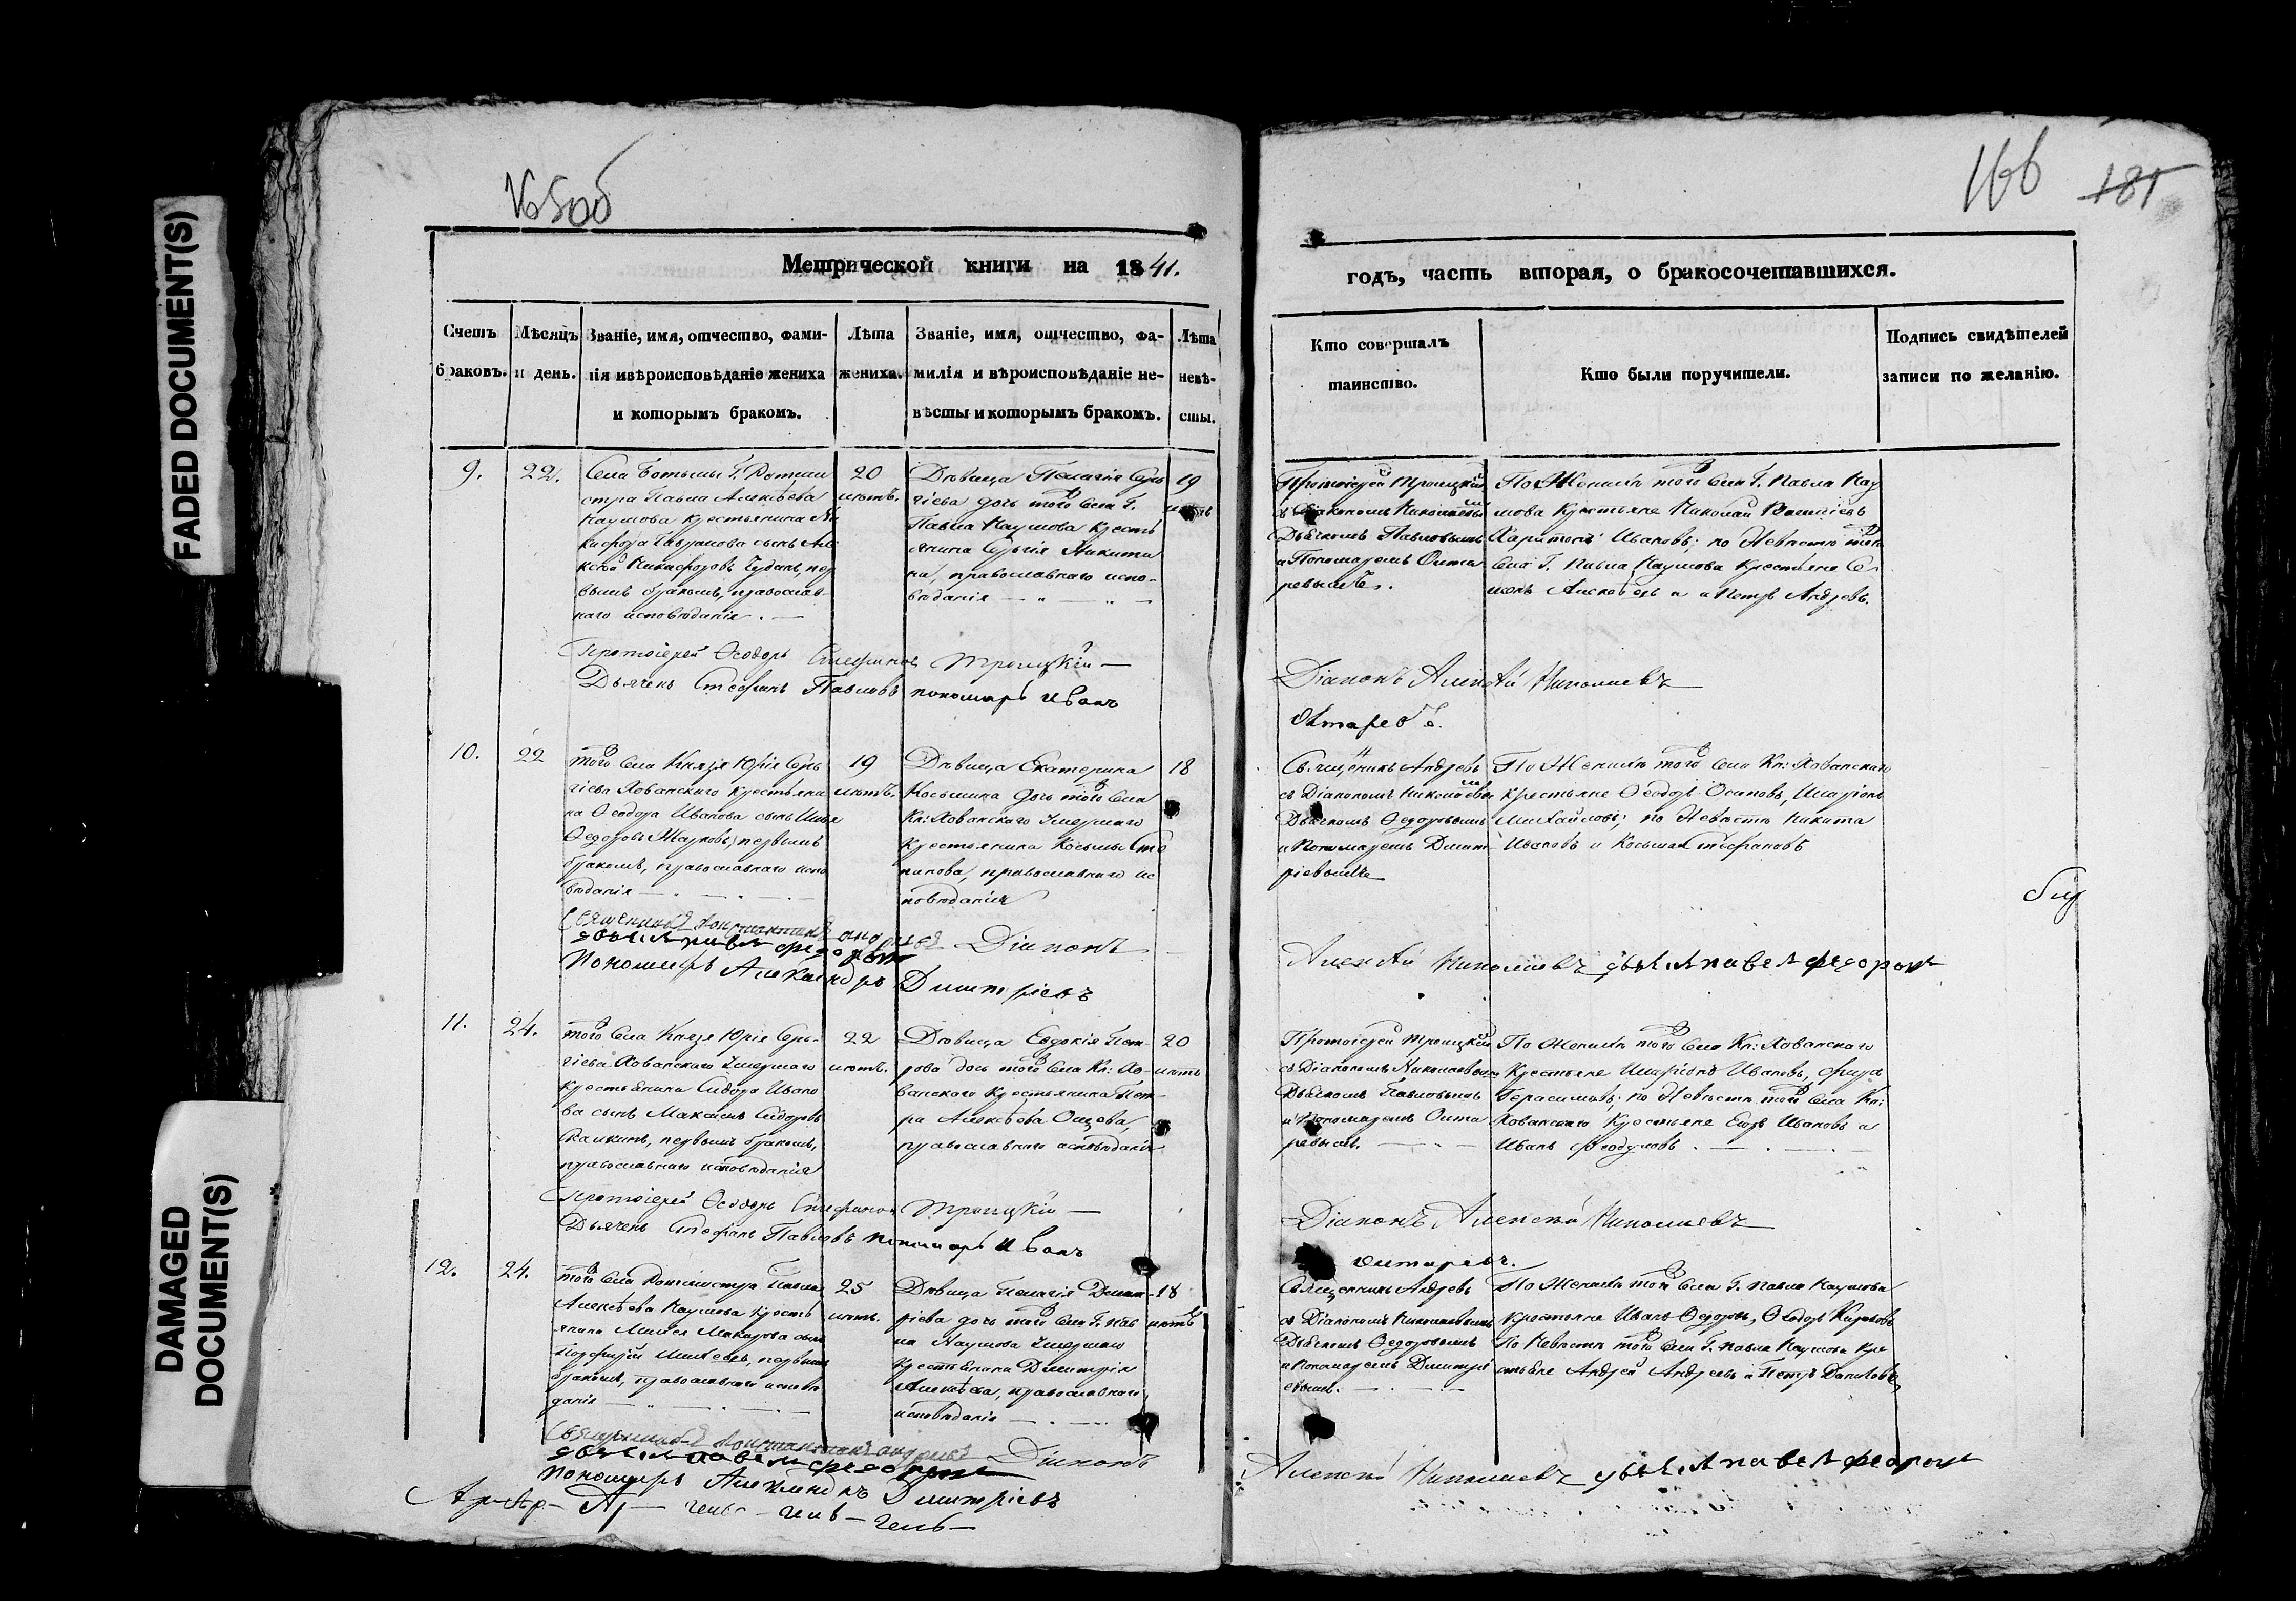 FADED DOCUMENT(S)
DAMAGED
DOCUMENT(S)
165об
166 181
Метрической книги на 1841.
годъ, часть вторая, о бракосочетавшихся.
Счетъ
браковъ.
Мѣсяцъ
и день.
Званіе, имя, отчество, фами-
лія и вѣроисповѣданіе жениха
и которымъ бракомъ.
Лѣта
жениха.
Званіе, имя, отчество, фа-
милія и вѣроисповѣданіе не-
вѣсты и которымъ бракомъ.
Лѣта
невѣ-
сты.
Кто совершалъ
таинство.
Кто были поручители.
Подпись свидѣтелей
записи по желанію.
9.
22.
Села Г. Ротми
стра Павла Алексѣева
Наумова крестьянина Ни
кифора сынъ Але
ксѣй Никифоровъ пер
вымъ бракомъ, православ-
наго исповѣданія.
20
лѣтъ.
Дѣвица Пелагія Сер
гіева дочь того села Г.
Павла Наумова кресть
янина Сергія Никити
на, православнаго испо-
вѣданія
19
лѣтъ
Протоіерей Троицкій
съ Діакономъ Николаевы
Дьячкомъ Павловымъ
и Пономаремъ Окта
ревымъ.
По Женихѣ того села Г. Павла Нау
мова крестьяне Николай
Харитонъ Ивановъ; по Невѣстѣ того
села Г. Павла Наумова крестьяне Се
менъ и Петръ Андреевъ.
Протоіерей Ѳеодоръ Стефановъ Троицкій
Дьячекъ Стефанъ Павловъ пономарь Иванъ
Діаконъ Алексѣй Николаевъ
Октаревъ.
10.
22
того села Князя Юрія Сер
гіева Хованскаго крестьяни
на Ѳеодора Иванова сынъ Илья
Ѳедоровъ первымъ
бракомъ, православнаго испо
вѣданія
19
лѣтъ.
Дѣвица Екатерина
Косьмина дочь того села
Кн: Хованскаго умершаго
крестьянина Косьмы Сте
панова, православнаго ис
повѣданія
18
Священникъ Андреевъ
съ Діакономъ Николаевы
Дьячкомъ Ѳедоровымъ
и Пономаремъ Димит
ріевымъ
По Женихѣ того села Кн: Хованскаго
крестьяне Ѳеодоръ Осиповъ, Иларіонъ
Михайловъ; по Невѣстѣ Никита
Ивановъ и Косьма Стефановъ
Священникъ Константинъ Андреевъ Діаконъ
дьячекъ павелъ федоровъ
Пономарь Александръ Димитріевъ
Алексѣй Николаевъ дьячекъ павелъ федоровъ
11.
24.
того села Князя Юрія Сер-
гіева Хованскаго умершаго
крестьянина Сидора Ивано
ва сынъ Максимъ Сидоровъ
первымъ бракомъ,
православнаго исповѣданія
22
лѣтъ.
Дѣвица Евдокія Пет-
рова дочь того села Кн: Хо-
ванскаго крестьянина Пет-
ра Алексѣева
православнаго исповѣданія
20
лѣтъ
Протоіерей Троицкій
съ Діакономъ Николаевы
Дьячкомъ Павловымъ
и Пономаремъ Окта
ревымъ.
По Женихѣ того села Кн: Хованскаго
крестьяне Иларіонъ Ивановъ,
Герасимовъ; по Невѣстѣ того села Кн:
Хованскаго крестьяне Егоръ Ивановъ и
Иванъ Ѳеодуловъ.
Протоіерей Ѳеодоръ Стефановъ Троицкій
Дьячекъ Стефанъ Павловъ пономарь Иванъ
Діаконъ Алексѣй Николаевъ
Октаревъ.
12.
24.
того села Ротмистра Павла
Алексѣева Наумова кресть
янина Михея Макарова сынъ
Порфирій Михеевъ, первымъ
бракомъ, православнаго исповѣ
данія
25
лѣтъ.
Дѣвица Пелагія Димит-
ріева дочь того села Г. Пав
ла Наумова умершаго
крестьянина Димитрія
Алексѣева, православнаго
исповѣданія
18
лѣтъ
Священникъ Андреевъ
съ Діакономъ Николаевымъ
Дьячкомъ Ѳедоровымъ
и Пономаремъ Димитрі
евымъ.
По Женихѣ того села Г. Павла Наумова
крестьяне Иванъ Ѳедоровъ, Ѳеодоръ
По Невѣстѣ того села Г. Павла Наумова кре
стьяне Андрей Андреевъ и Петръ Даниловъ
Священникъ Константинъ Андреевъ Діаконъ
дьячекъ павелъ федоровъ
пономарь Александръ Димитріевъ
Алексѣй Николаевъ дьячекъ павелъ федоровъ